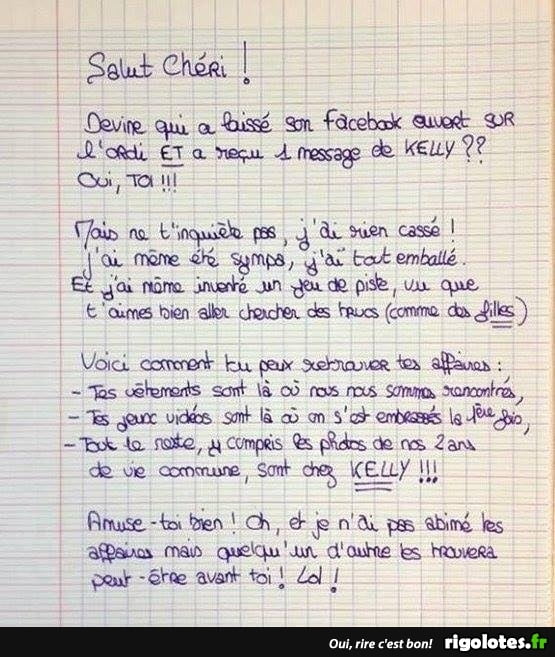 Salut Chéri !
Devine qui a laissé son facebook ouvert SUR
l'ordi ET a reçu 1 message de KELLY ??
Oui, TOI !!!
Mais ne t'inquiète pas, j'ai rien cassé !
j'ai même été sympa, j'ai tout emballé.
Et j'ai même inventé un jeu de piste, vu que
t'aimes bien aller chercher des trucs (comme des filles)
Voici comment tu peux retrouver tes affaires :
- Tes vêtements sont là où nous nous sommes rencontrés,
- Tes jeux vidéos sont là où on s'est embrassés la 1ère fois,
- Tout le reste, y compris les photos de nos 2 ans
de vie commune, sont chez KELLY !!!
Amuse-toi bien ! Oh, et je n'ai pas abimé les
affaires mais quelqu'un d'autre les trouvera
peut-être avant toi ! Lol !
Oui, rire c'est bon! rigolotes.fr